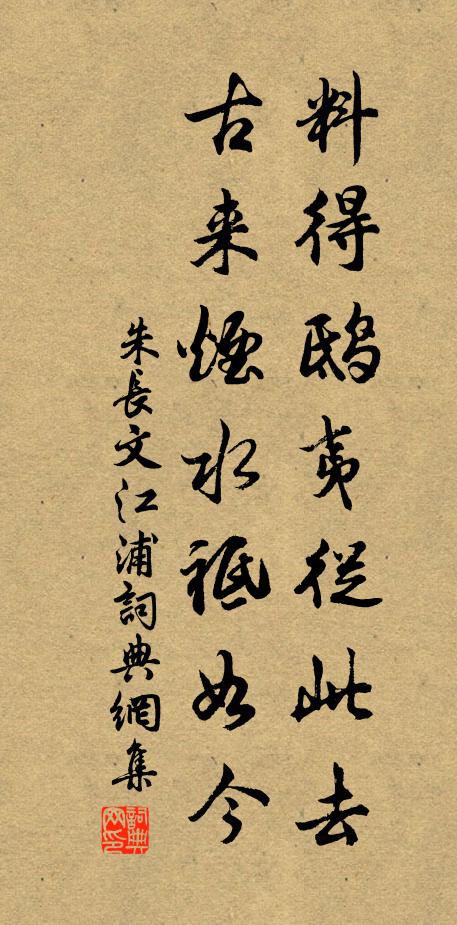 料得鴟夷從此去
古来煙水祗如今
朱長文江浦詞典網集
詞典網印